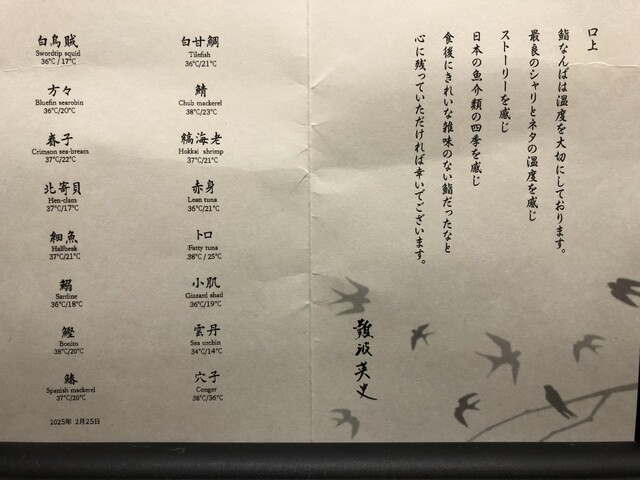 白烏賊
Swordtip squid
36℃ / 17℃
方々
Bluefin searobin
36℃/20℃
春子
Crimson sea-bream
37℃/22℃
北寄貝
Hen-clam
37℃/17℃
細魚
Halfbeak
37℃/21℃
鰯
Sardine
36℃/18℃
鰹
Bonito
38℃/20℃
鰆
Spanish mackerel
37℃/20℃
2025年 2月25日
白甘鯛
Tilefish
36℃/21℃
鯖
Chub mackerel
38℃/23℃
縞海老
Hokkai shrimp
37℃/21℃
赤身
Lean tuna
36℃/21℃
トロ
Fatty tuna
38℃ / 25℃
小肌
Gizzard shad
36℃/19℃
雲丹
Sea urchin
34℃/14℃
穴子
Conger
38℃/36℃
口上
鮨なんばは温度を大切にしております。
最良のシャリとネタの温度を感じ
ストーリーを感じ
日本の魚介類の四季を感じ
食後にきれいな雑味のない鮨だったなと
心に残っていただければ幸いでございます。
難波英史